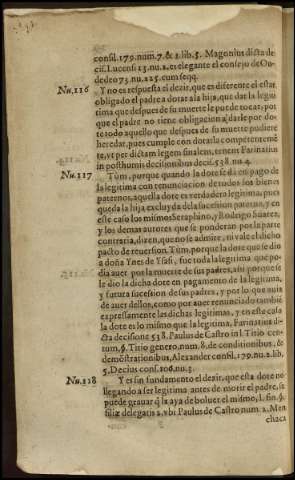 consil. 179. num. 7. & 1. lib. 5. Magonius dicta de
cis. Lucensi 13. nu. 2. es elegante el consejo de Ou-
dedeo 73. nu. 125. cum seqq.
Nu. 116 Y no es respuesta el dezir, que es diferente el estar
obligado el padre a dotar a la hija, que dar la legi-
tima que despues de su muerte le puede tocar, por
que el padre no tiene obligacion a darle por do-
te todo aquello que despues de su muerte pudiere
heredar, pues cumple con dotarla competentemē
te, vt per dictam legem sinalem, tenent Farinatius
in posthumis decisionibus decis. 538. nu. 4.
Nu. 117 Tùm, porque quando la dote se dà en pago de
la legitima con renunciacion de todos los bienes
paternos, aquella dote es verdadera legitima, pues
queda la hija excluyda de la sucession paterna, y en
este caso los mismos Seraphino, y Rodrigo Suarez,
y los demas autores que se ponderan por la parte
contraria, dizen, que no se admite, ni vale el dicho
pacto de reuersion. Tùm, porque la dote que se dio
a doña Ynes de Ysasi, fue toda la legitima que po-
dia auer por la muerte de sus padres, assi porque se
le dio la dicha dote en pagamento de la legitima,
y futura sucesion de sus padres, y por lo que auia
de auer dellos, como por auer renunciado tambiē
expressamente las dichas legitimas, y en este caso
la dote es lo mismo que la legitima, Farinatius di-
cta decisione 538. Paulus de Castro in l. Titio cen-
tum, §. Titio genero, num. 8. de conditionibus, &
demōstrationibus, Alexander consil. 179. nu. 2. lib.
5. Decius cons. 106. nu. 3.
Nu. 118 Y es sin fundamento el dezir, que esta dote no
llegando a ser legitima antes de morir el padre, se
puede grauar q̄ la aya de boluer el mismo, l. fin. §.
filiæ delegatis 2. vbi Paulus de Castro num. 2. Men
chaca